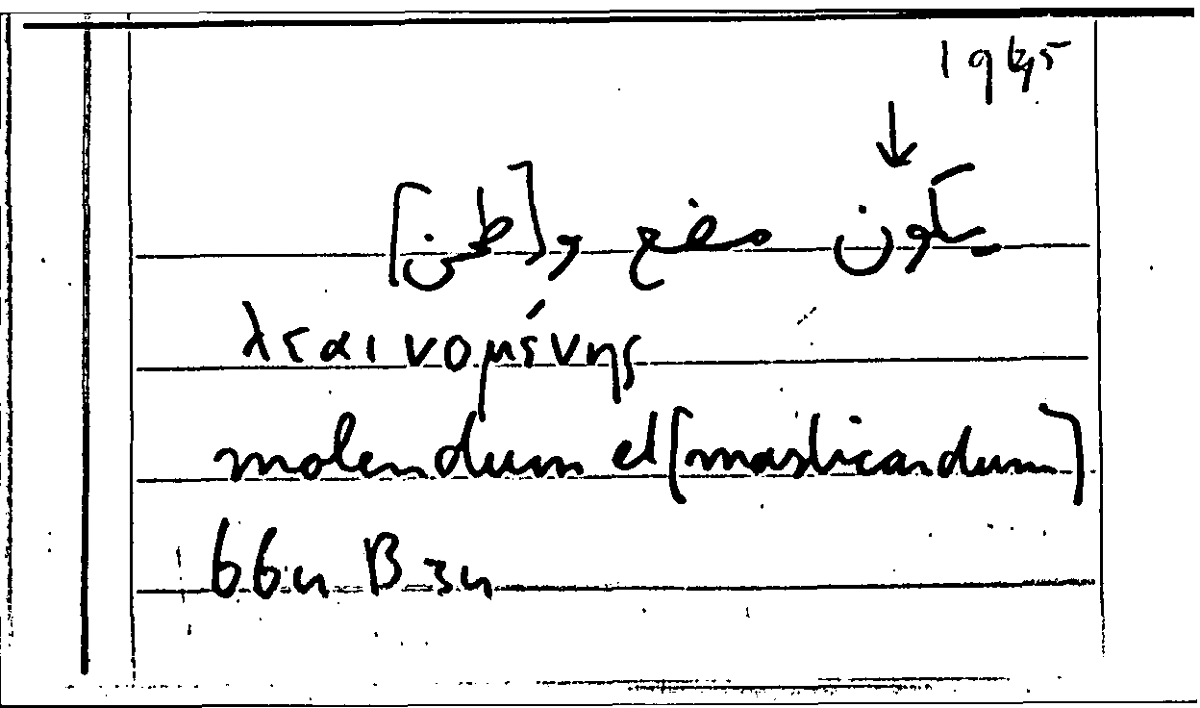 ↓
يكون مضغ و[طحن]
λεαινομένης
molendum et [masticandum]
664 B 34